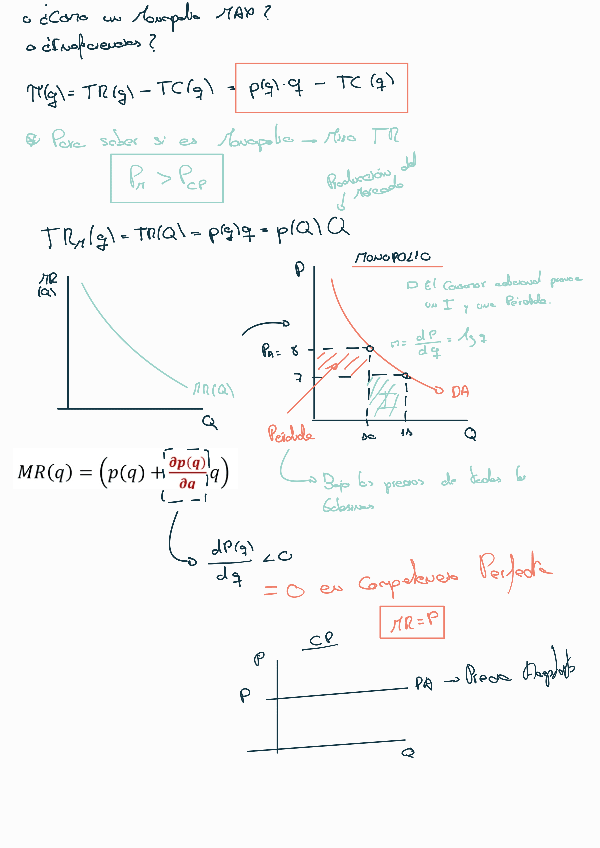 ¿Como un Monopolio MAX?
¿Ineficiencias?
π(q) = TR(q) - TC(q) = p(q)·q - TC(q)
Para saber si es Monopolio → Miro TR
P_M > P_CP
Producción del Mercado
TR_M(q) = TR(Q) = p(q)q = p(Q)Q
MR (Q)
MR(Q)
Q
MONOPOLIO
P
El Consumor adicional provoca
un I y una Pérdida.
= dP/dq =
P_A = 8
7
DA
10
Q
Pérdida
I
Bajo los precios de todas las
MR(q) = (p(q) + ∂p(q)/∂q q)
dP(q)/dq < 0
= 0 en Competencia Perfecta
MR = P
CP
P
P
DA → Precio
Q